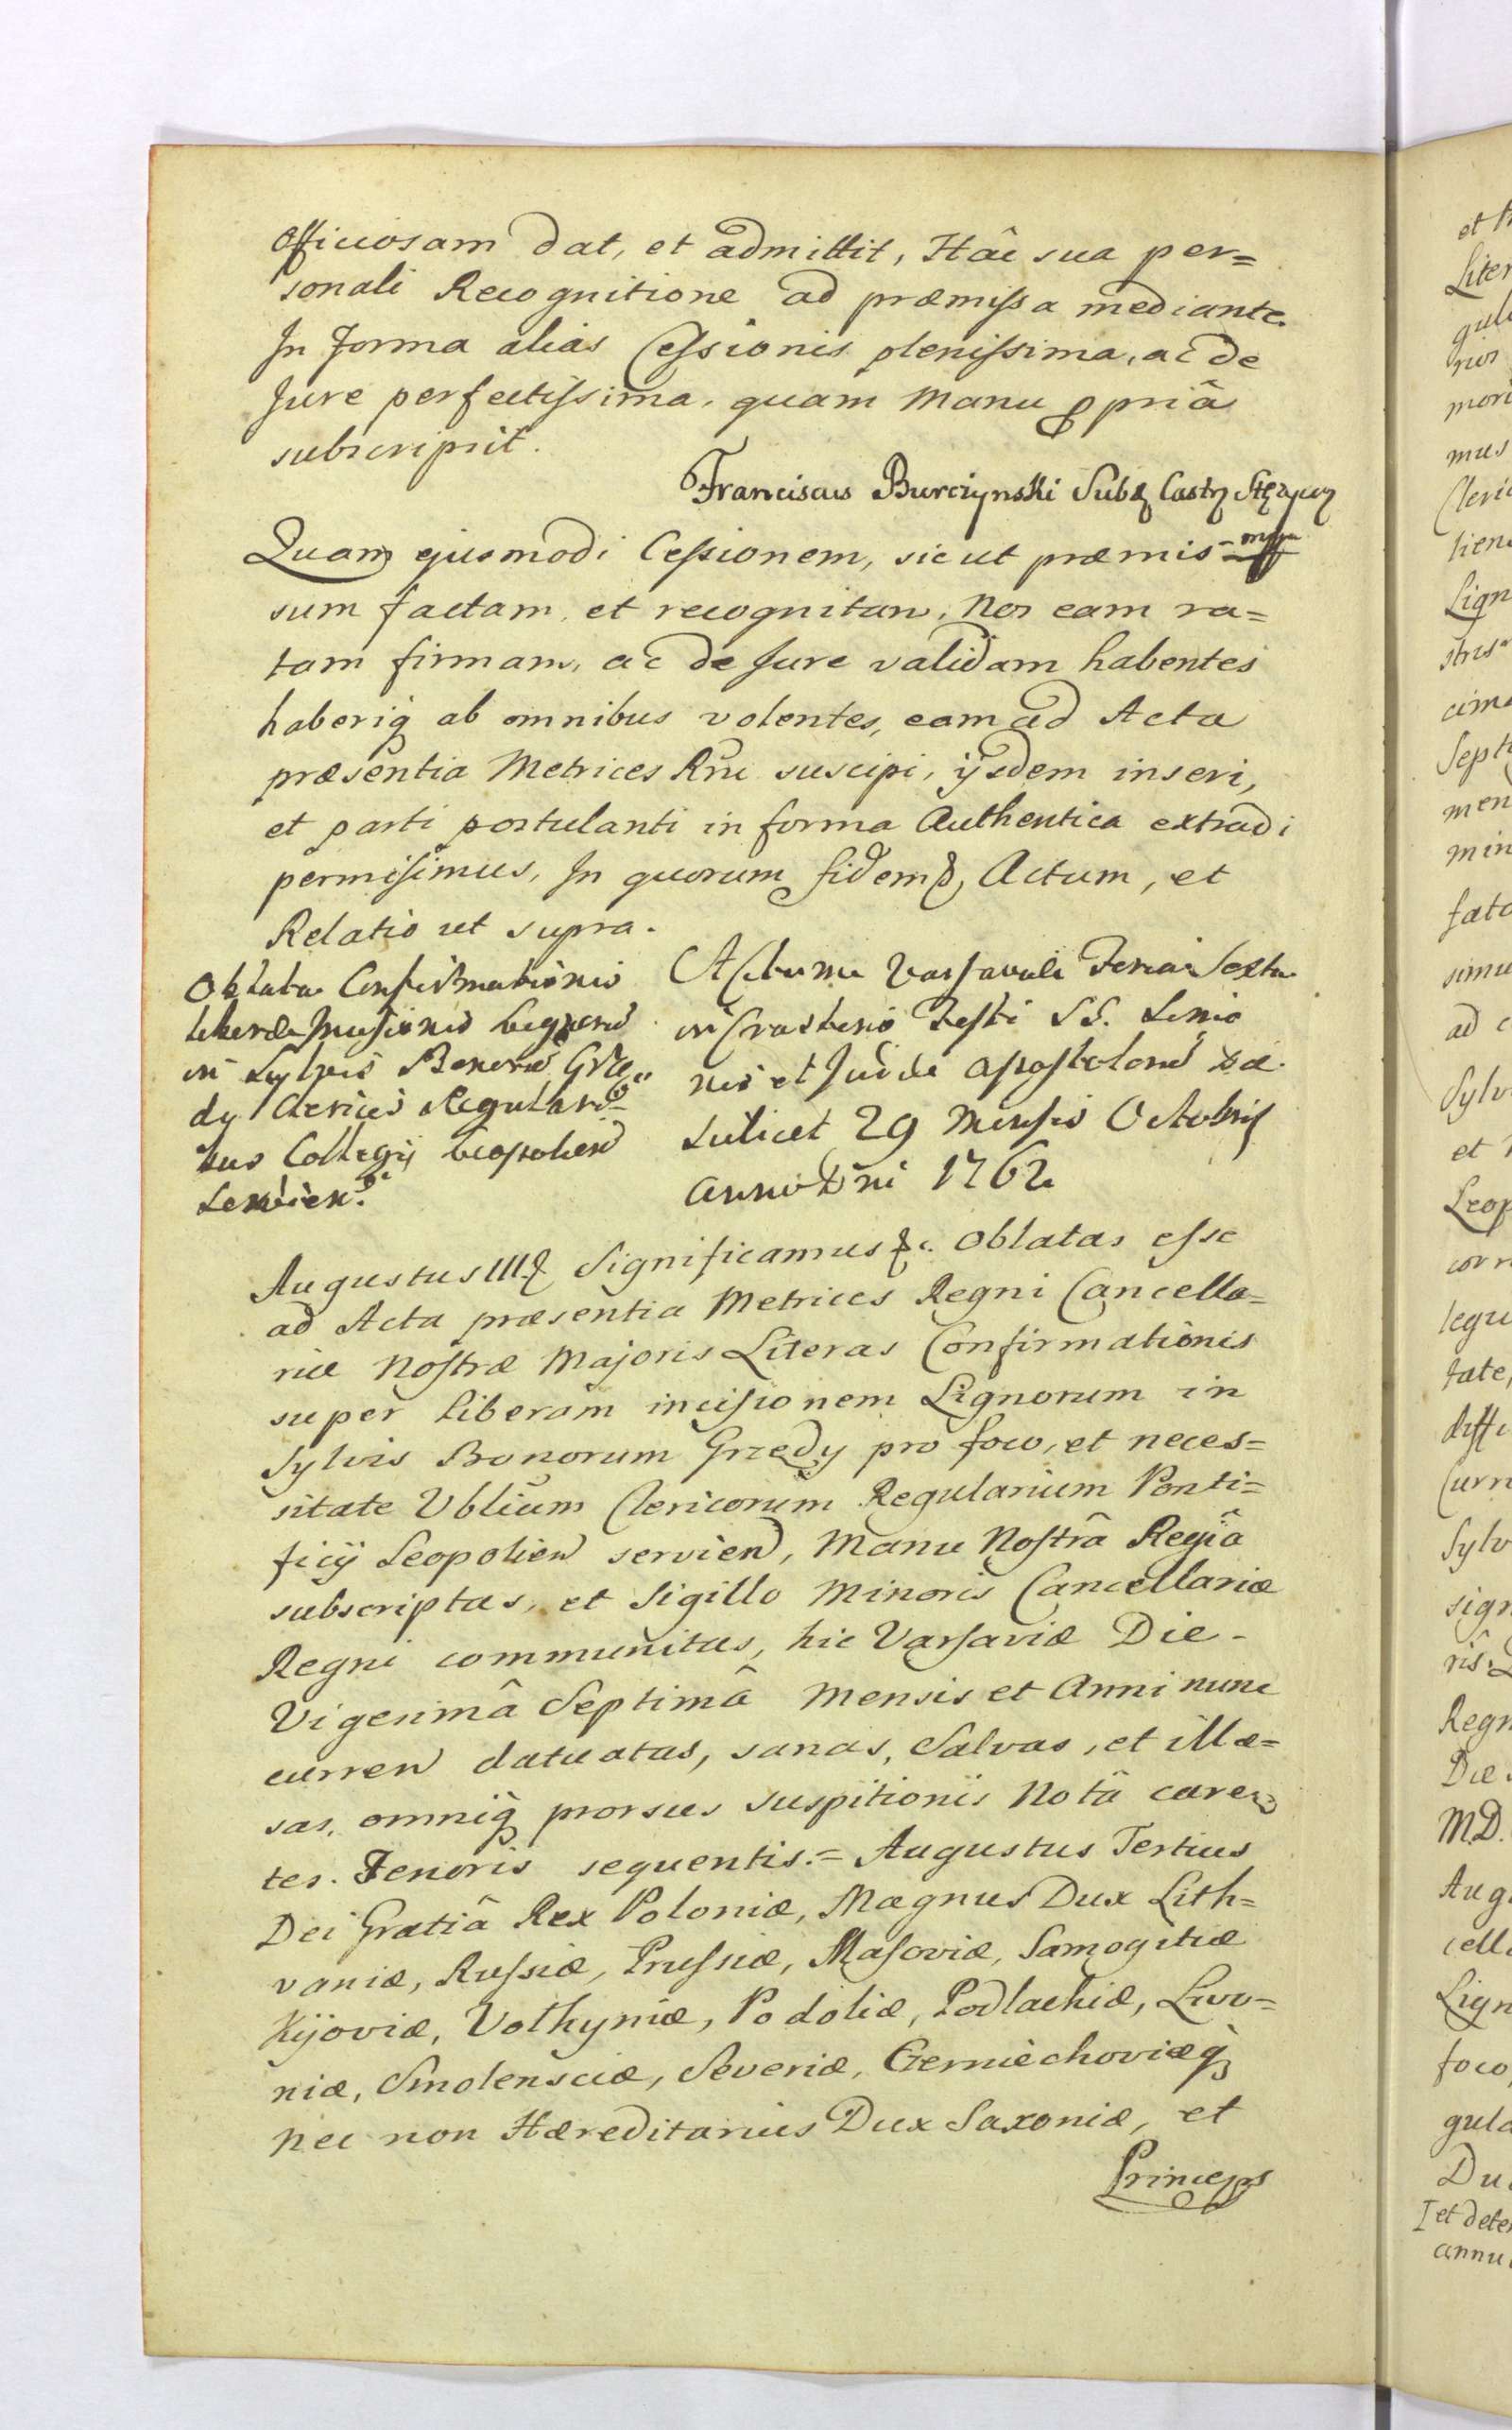 Officiosam dat, et admittit, Hâc sua per=
sonali Recognitione ad præmissa mediante.
In Forma alias Cessionis plenissima, ac de
Jure perfectissima, quam Manu ppriâ
subscripsit.
Franciscus Burczynski Subd Castr Stężycz
mppa
Quam ejusmodi Cessionem, sicut præmis=
sum factam, et recognitam, Nos eam ra=
tam firmam, ac de Jure validam habentes
haberiq ab omnibus volentes, eam ad Acta
præsentia Metrices Rni suscipi, ijsdem inseri,
et parti postulanti in forma Authentica extradi
permisimus, In quorum fidem &, Actum, et
Relatio ut supra.
Oblata Confirmationis
liberæ Incisionis Lignorū
in Sylvis Bonorū Grze„
dy Clericis Regulari=
bus Collegij Leopolien
servien.
Actum Varsaviæ Feria Sexta
in Crastino Festi SS. Simo
nis et Judæ Apostolorū Die
scilicet 29 Mensis Octobris
Anno Dni 1762
Augustus III & Significamus &c. Oblatas esse
ad Acta præsentia Metrices Regni Cancella=
riæ Nostræ Majoris Literas Confirmationis
super liberam incisionem Lignorum in
Sylvis Bonorum Grzedy pro foco, et neces=
sitate Ublium Clericorum Regularium Ponti=
ficij Leopolien servien, Manu Nostrâ Regiâ
subscriptas, et Sigillo Minoris Cancellariæ
Regni communitas, hic Varsaviæ Die
Vigesimâ Septimâ Mensis et Anni nunc
curren datuatas, sanas, Salvas, et illæ=
sas, omniq prorsus suspitionis Notâ caren
tes. Tenoris sequentis.= Augustus Tertius
Dei Gratiâ Rex Poloniæ, Magnus Dux Lith=
vaniæ, Russiæ, Prussiæ, Masoviæ, Samogitiæ
Kijoviæ, Volhyniæ, Podoliæ, Podlachiæ, Livo=
niæ, Smolensciæ, Severiæ, Czerniechoviæq
nec non Hæreditarius Dux Saxoniæ, et
Princeps